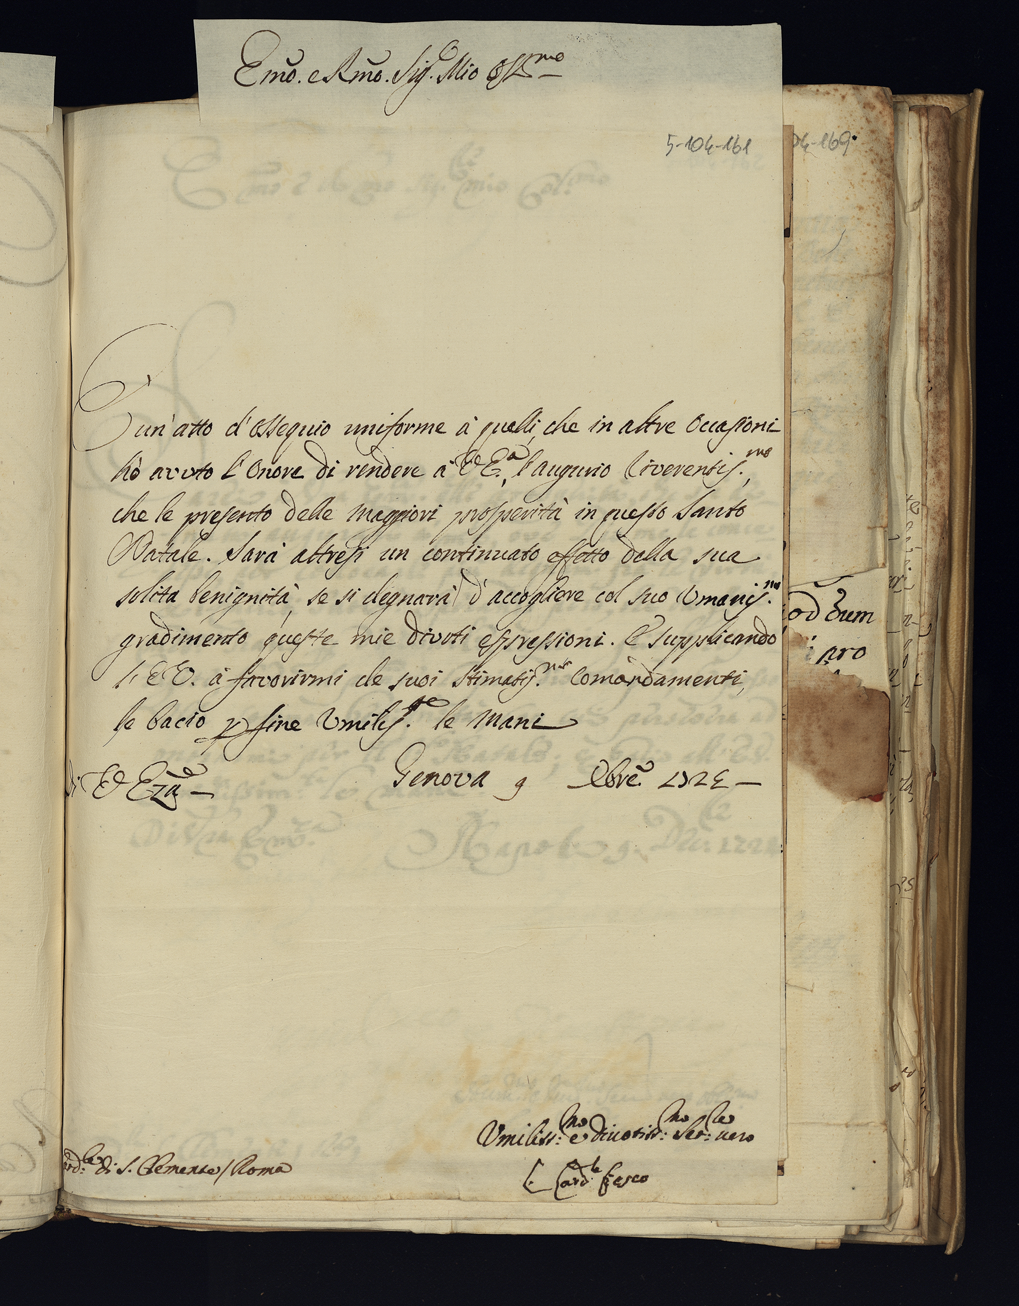 Emo. e Rmo. Sig.r Mio Oss.mo
5-104-161
04-169.
È un'atto d'ossequio uniforme à quelli, che in altre occasioni
hò avuto l'onore di rendere à V.E.a, l'augurio riverentis.mo,
che le presento delle maggiori prosperità in questo Santo
Natale. Sarà altresi un continuato effetto della sua
solita benignità, se si degnarà d'accogliere col suo Umanis.mo
gradimento queste mie divoti espressioni. E supplicando
l'E.V. à favorirmi de suoi stimatis.mi Comandamenti,
le bacio p fine Umilis.te le Mani
Di V.E.za Genova 9 Xbre. 1724
od eum
pro
Umiliss.mo e divotiss.mo Ser.re vero
Card.le di S. Clemente / Roma
L. Card.le Fiesco